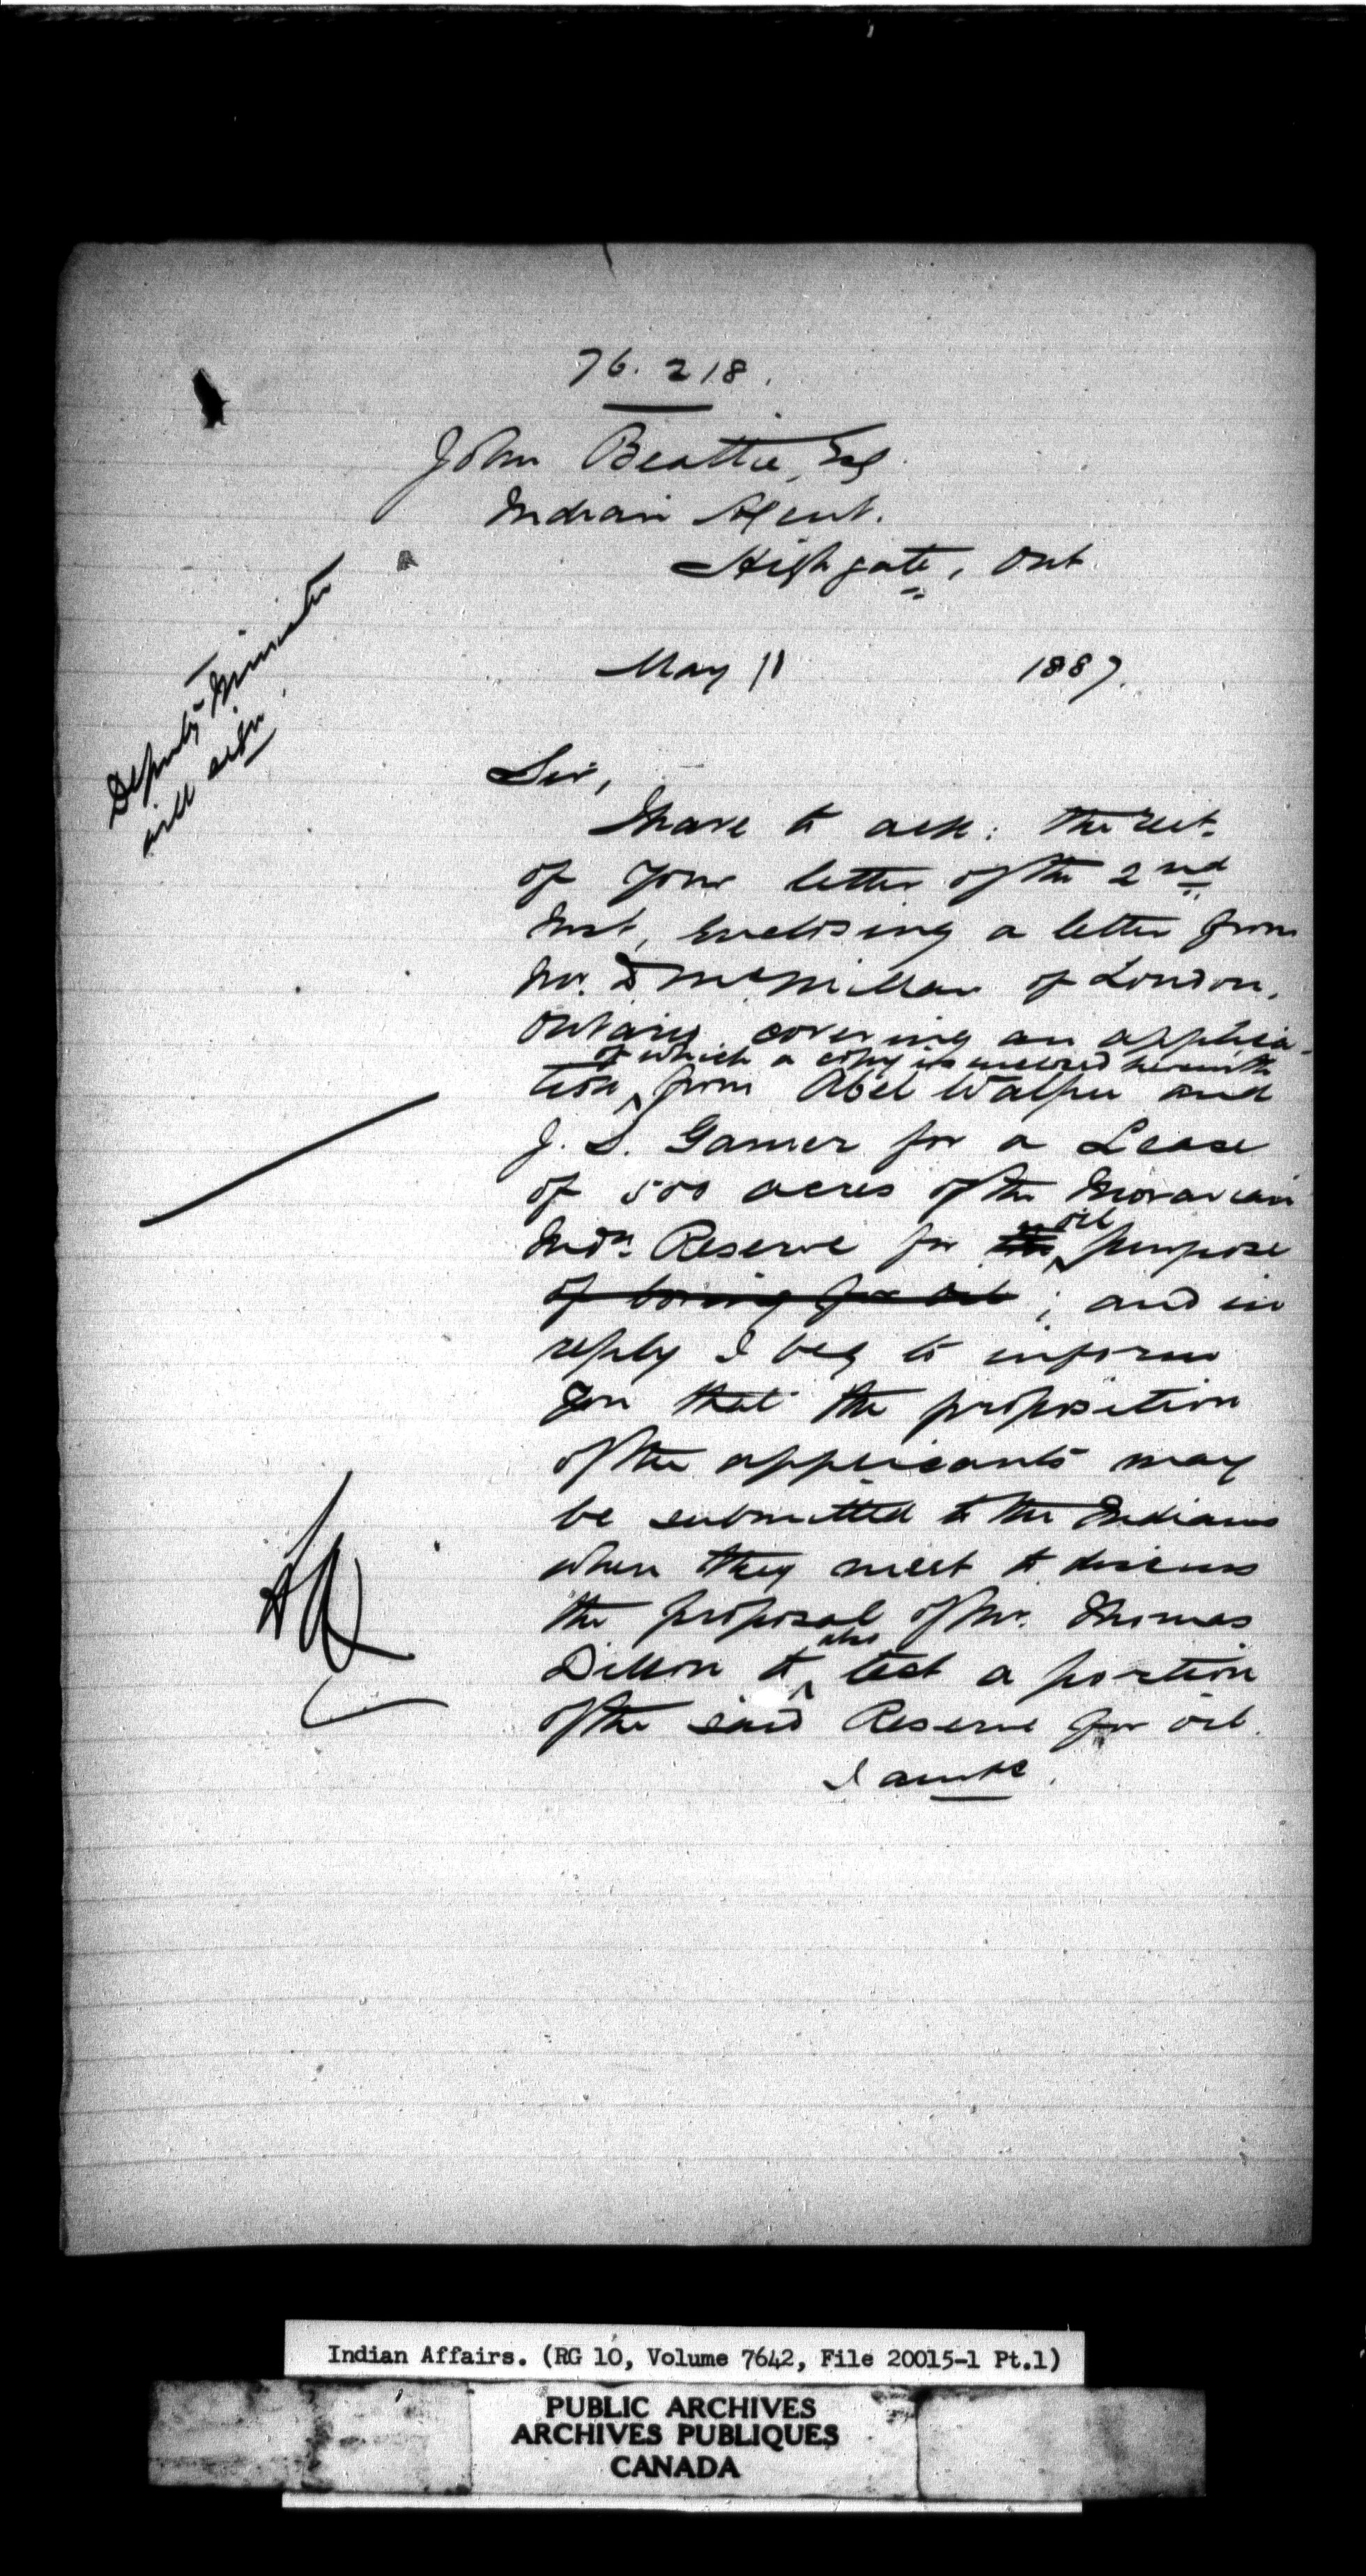 76.218.
John Beattie, Esq
Indian Agent.
Highgate, Ont
Deputy Minister
will sign.
May 11 1887.
Sir,
I have to ack: the rect.
of your letter of the 2nd
Inst, enclosing a letter from
Mr. D McMillan of London,
Ontario, covering an applica-
of which a copy is enclosed herewith
tion from Abel and
J. S. for a Lease
of 500 acres of the Moravian
oil
Indn. Reserve for the purpose
of boring for oil ; and in
reply I beg to inform
you that the proposition
of the applicants may
be submitted to the Indians
when they meet to discuss
the proposal of Mr. Thomas
also
Dillon to test a portion
of the said Reserve for oil.
I am &c.
Indian Affairs. (RG 10, Volume 7642, File 20015-1 Pt.1)
PUBLIC ARCHIVES
ARCHIVES PUBLIQUES
CANADA